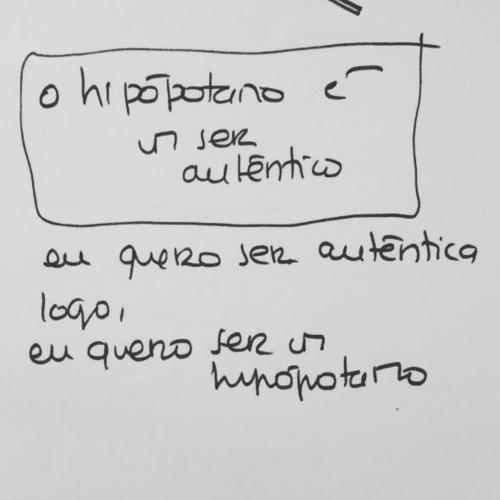 o hipōpotamo é
um ser
autēntico
eu quero ser autēntica
logo,
eu quero ser um
hipōpotamo